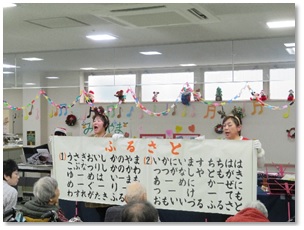 ふるさと
(1)うさぎおいし かのやま
こぶなつりし かのかわ
ゆーめは いーまも
めーぐーりーて
わすれがたき ふるさと
(2)いかにいます ちちはは
つつがなしや ともがき
あーめに かーぜに
つーけーても
おもいいづる ふるさと